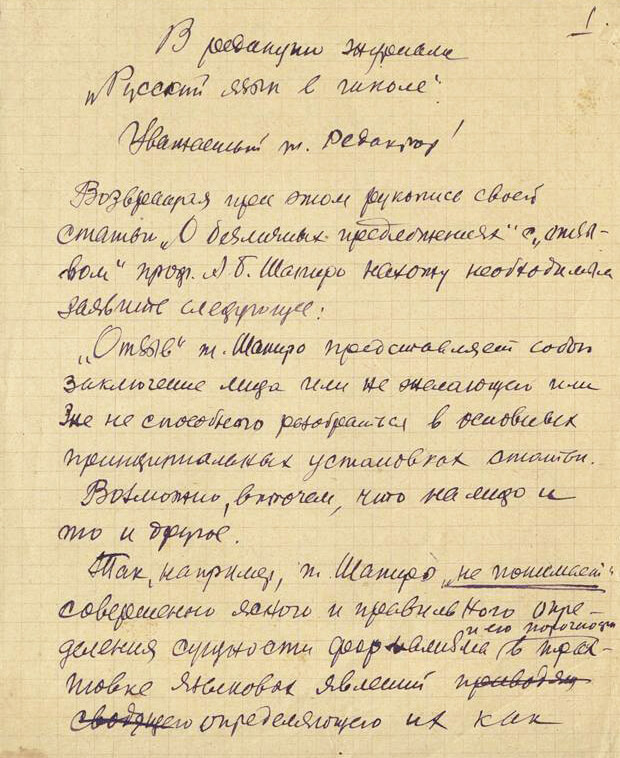 1.
В редакцию журнала
„Русский язык в школе".
Уважаемый т. Редактор!
Возвращая при этом рукопись своей
статьи „О безличных предложениях" с „отзы-
вом" проф. А.Б. Шапиро нахожу необходимым
заявить следующее:
„Отзыв" т. Шапиро представляет собой
заключение лица или не желающего или
не способного разобраться в основных
принципиальных установках статьи.
Возможно, впрочем, что налицо и
то и другое.
Так, например, т. Шапиро „не понимает"
совершенно ясного и правильного опре-
деления сущности формализма и его порочности в трак-
товке языковых явлений приводящ
сводящего определяющего их как